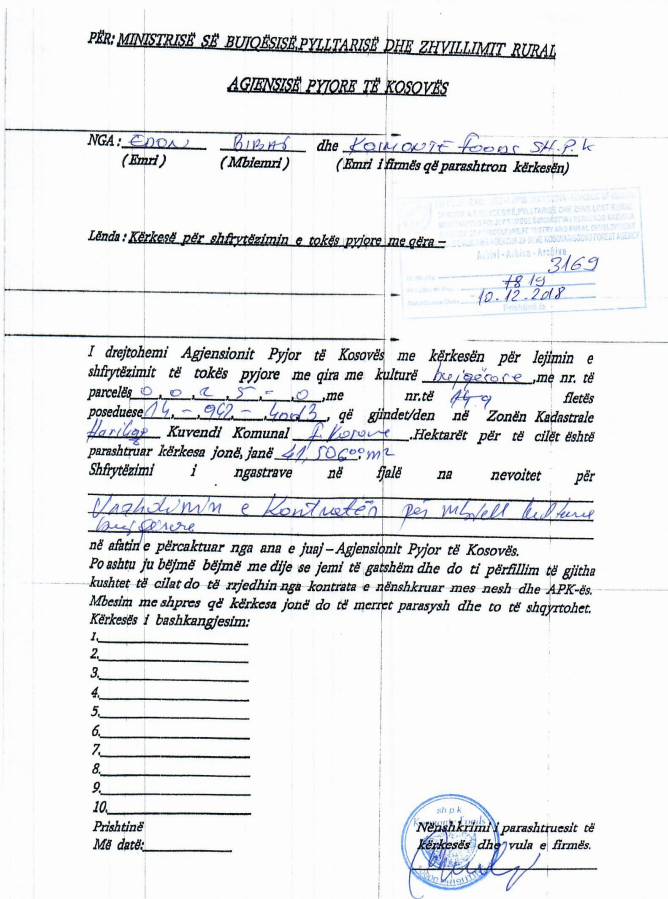 PËR: MINISTRISË SË BUJQËSISË,PYLLTARISË DHE ZHVILLIMIT RURAL
AGJENSISË PYJORE TË KOSOVËS
NGA: EDON BIBAJ dhe KOIMONTE Foods SH.P.K
(Emri) (Mbiemri) (Emri i firmës që parashtron kërkesën)
Lënda : Kërkesë për shfrytëzimin e tokës pyjore me qëra –
Arkivi - Arhiva - Archive
3169
1819
10.12.2018
I drejtohemi Agjensionit Pyjor të Kosovës me kërkesën për lejimin e
shfrytëzimit të tokës pyjore me qira me kulturë bujqësore ,me nr. të
parcelës ,me nr.të fletës
poseduese , që gjindet/den në Zonën Kadastrale
Kuvendi Komunal F. Kosovë .Hektarët për të cilët është
parashtruar kërkesa jonë, janë m2
Shfrytëzimi i ngastrave në fjalë na nevoitet për
Vazhdimin e Kontratën për mbjell kulture
bujqësore
në afatin e përcaktuar nga ana e juaj – Agjensionit Pyjor të Kosovës.
Po ashtu ju bëjmë bëjmë me dije se jemi të gatshëm dhe do ti përfillim të gjitha
kushtet të cilat do të rrjedhin nga kontrata e nënshkruar mes nesh dhe APK-ës.
Mbesim me shpres që kërkesa jonë do të merret parasysh dhe to të shqyrtohet.
Kërkesës i bashkangjesim:
1.
2.
3.
4.
5.
6.
7.
8.
9.
10.
Prishtinë
Më datë:
sh p k
Nënshkrimi i parashtruesit të
kërkesës dhe vula e firmës.